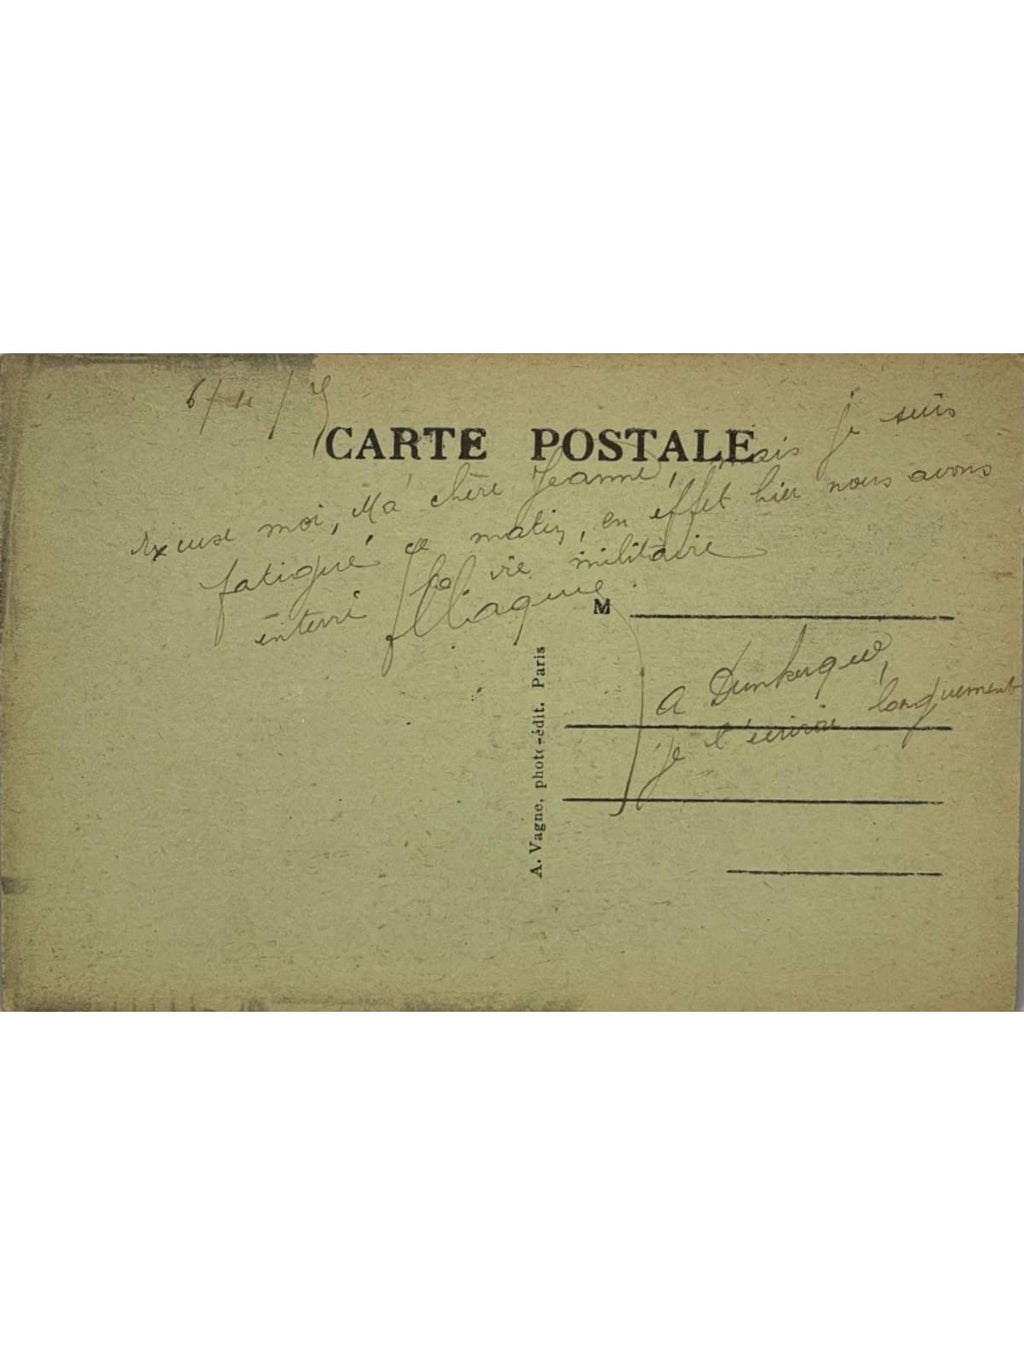 CARTE POSTALE
Excuse moi, Ma chère Jeanne, mais je suis
fatigué ce matin, en effet hier nous avons
enterré la vie militaire
M
A Dunkerque,
je t'écrirai longuement
A. Vagne, phot.-édit. Paris